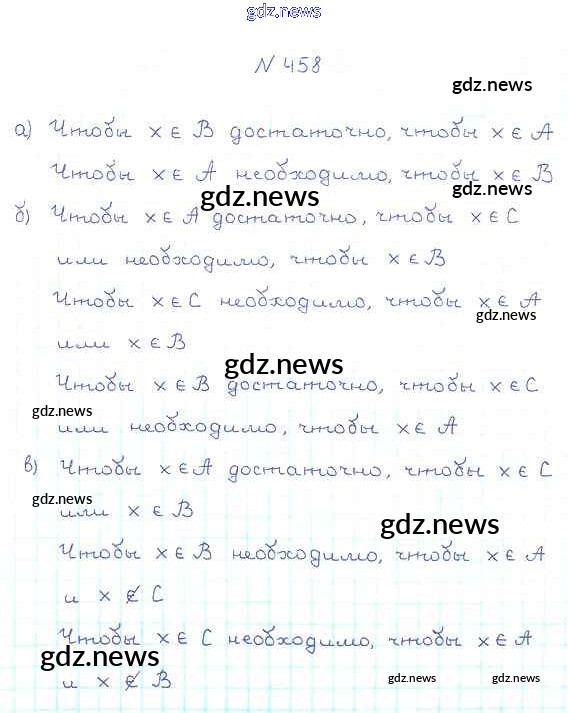 gdz.news
N 458
gdz.news
а) Чтобы x ∈ B достаточно, чтобы x ∈ A
Чтобы x ∈ A необходимо, чтобы x ∈ B
gdz.news
gdz.news
б) Чтобы x ∈ A достаточно, чтобы x ∈ C
или необходимо, чтобы x ∈ B
Чтобы x ∈ C необходимо, чтобы x ∈ A
gdz.news
или x ∈ B
gdz.news
Чтобы x ∈ B достаточно, чтобы x ∈ C
gdz.news
или необходимо, чтобы x ∈ A
в) Чтобы x ∈ A достаточно, чтобы x ∈ C
gdz.news
или x ∈ B
gdz.news
Чтобы x ∈ B необходимо, чтобы x ∈ A
и x ∉ C
Чтобы x ∈ C необходимо, чтобы x ∈ A
gdz.news
и x ∉ B
gdz.news
gdz.news